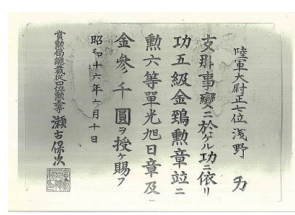 陸軍大尉正七位浅野 力
支那事變ニ於ケル功ニ依リ
功五級金鵄勲章竝ニ
勲六等單光旭日章及
金參千圓ヲ授ケ賜フ
昭和十六年六月十日
賞勲局總裁従四位勲三等 瀬古保次